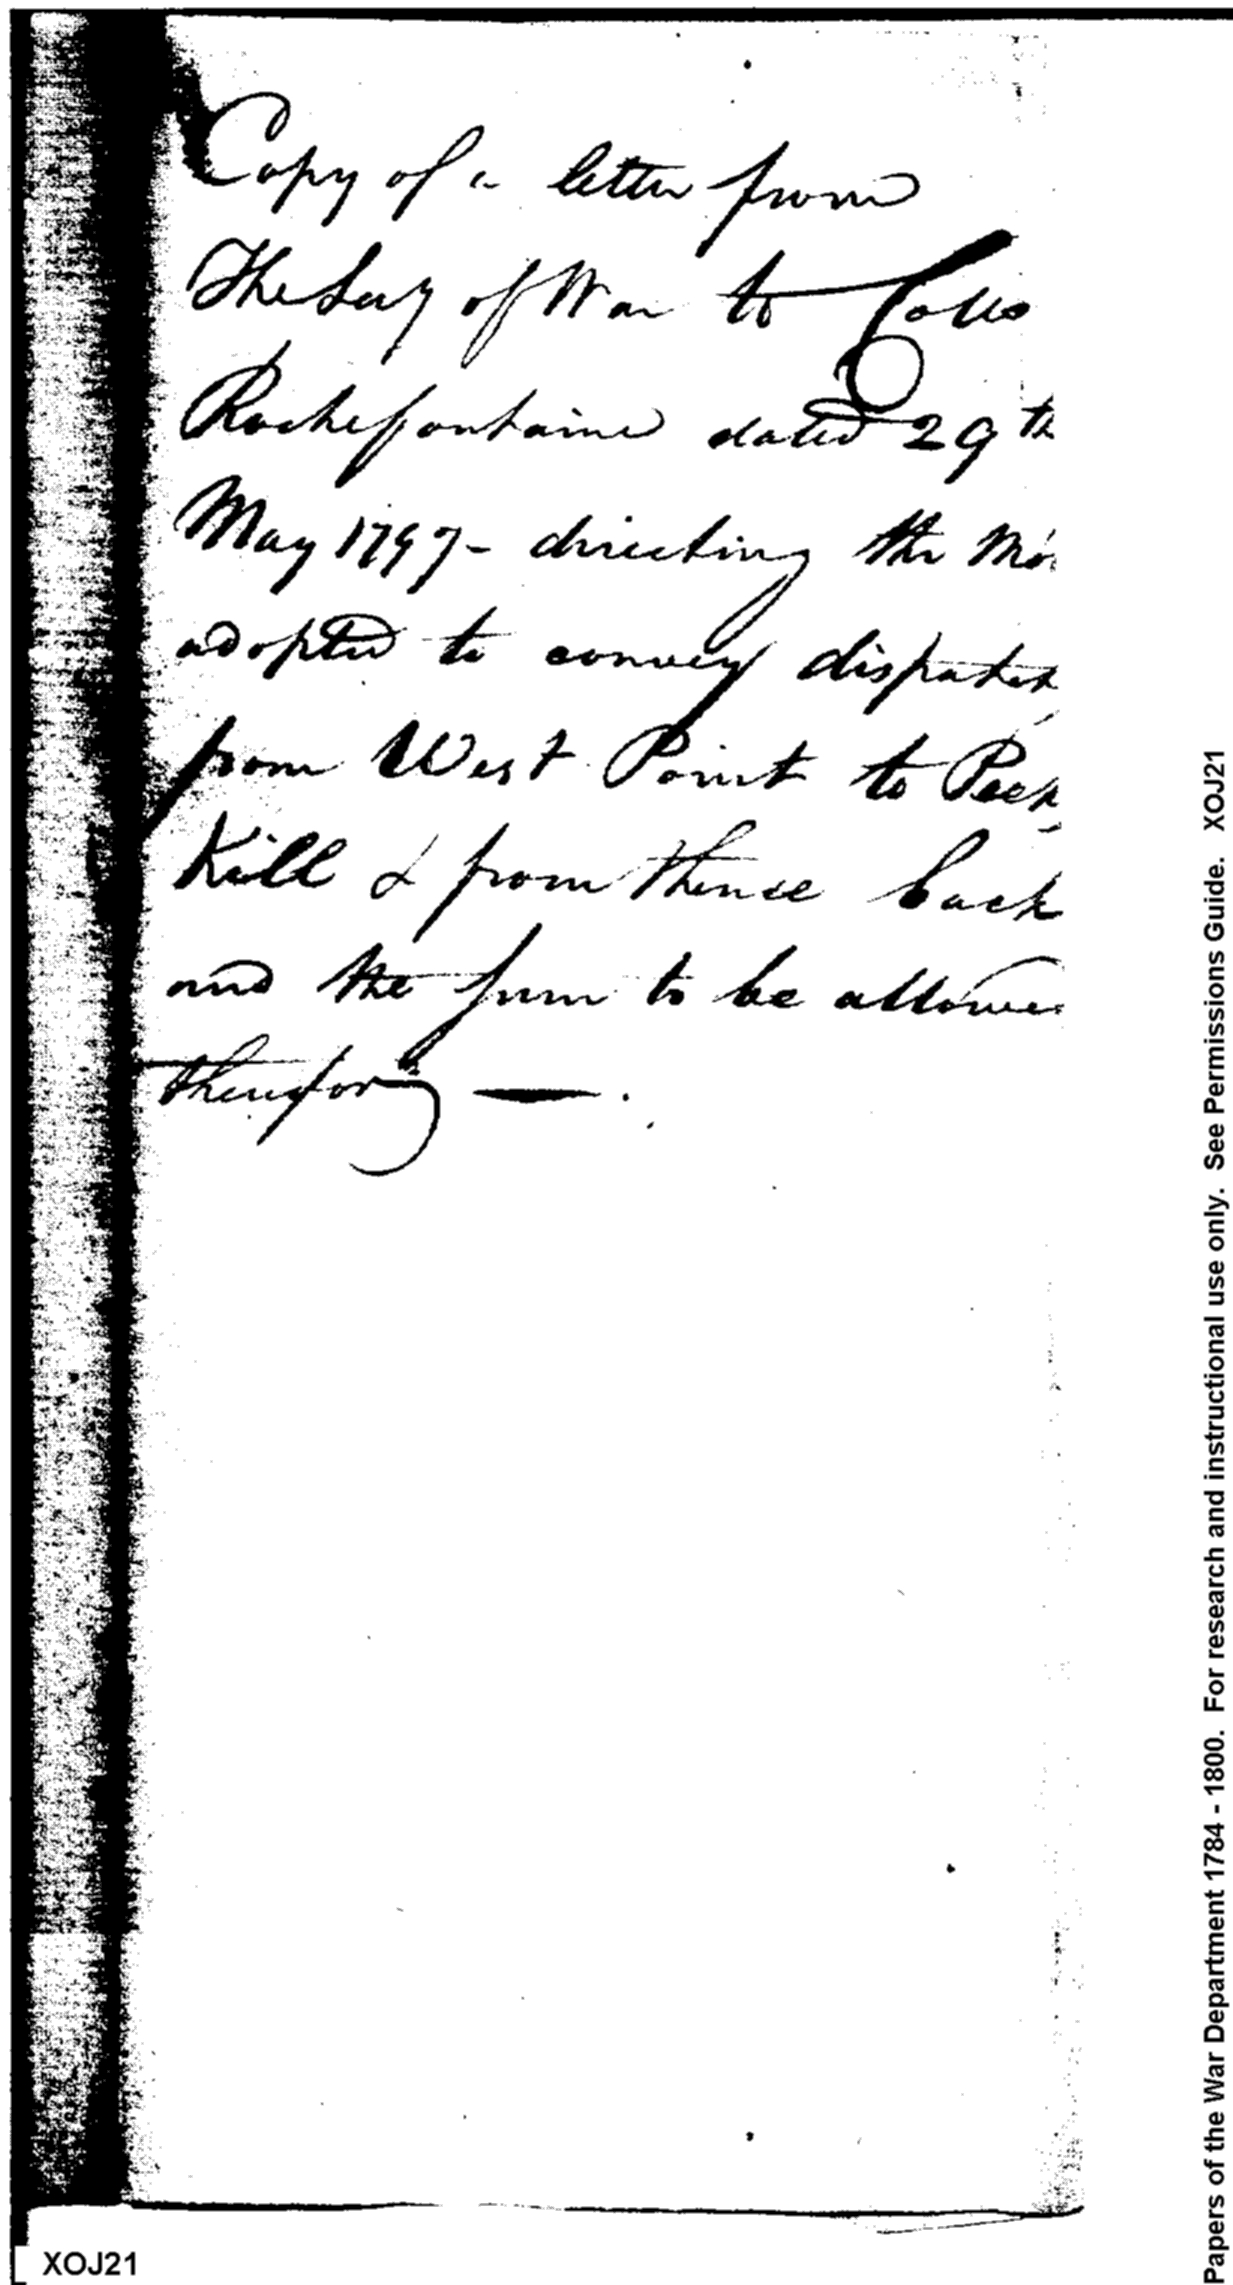 Copy of a letter from
The Secy of War to Collo
Rochefontaine dated 29th
May 1797- directing the Mo
adopted to convey dispatch
from West Point to Peek
Kill & from thence back
and the sum to be allowe
therefor — .
Papers of the War Department 1784 - 1800. For research and instructional use only. See Permissions Guide. XOJ21
XOJ21